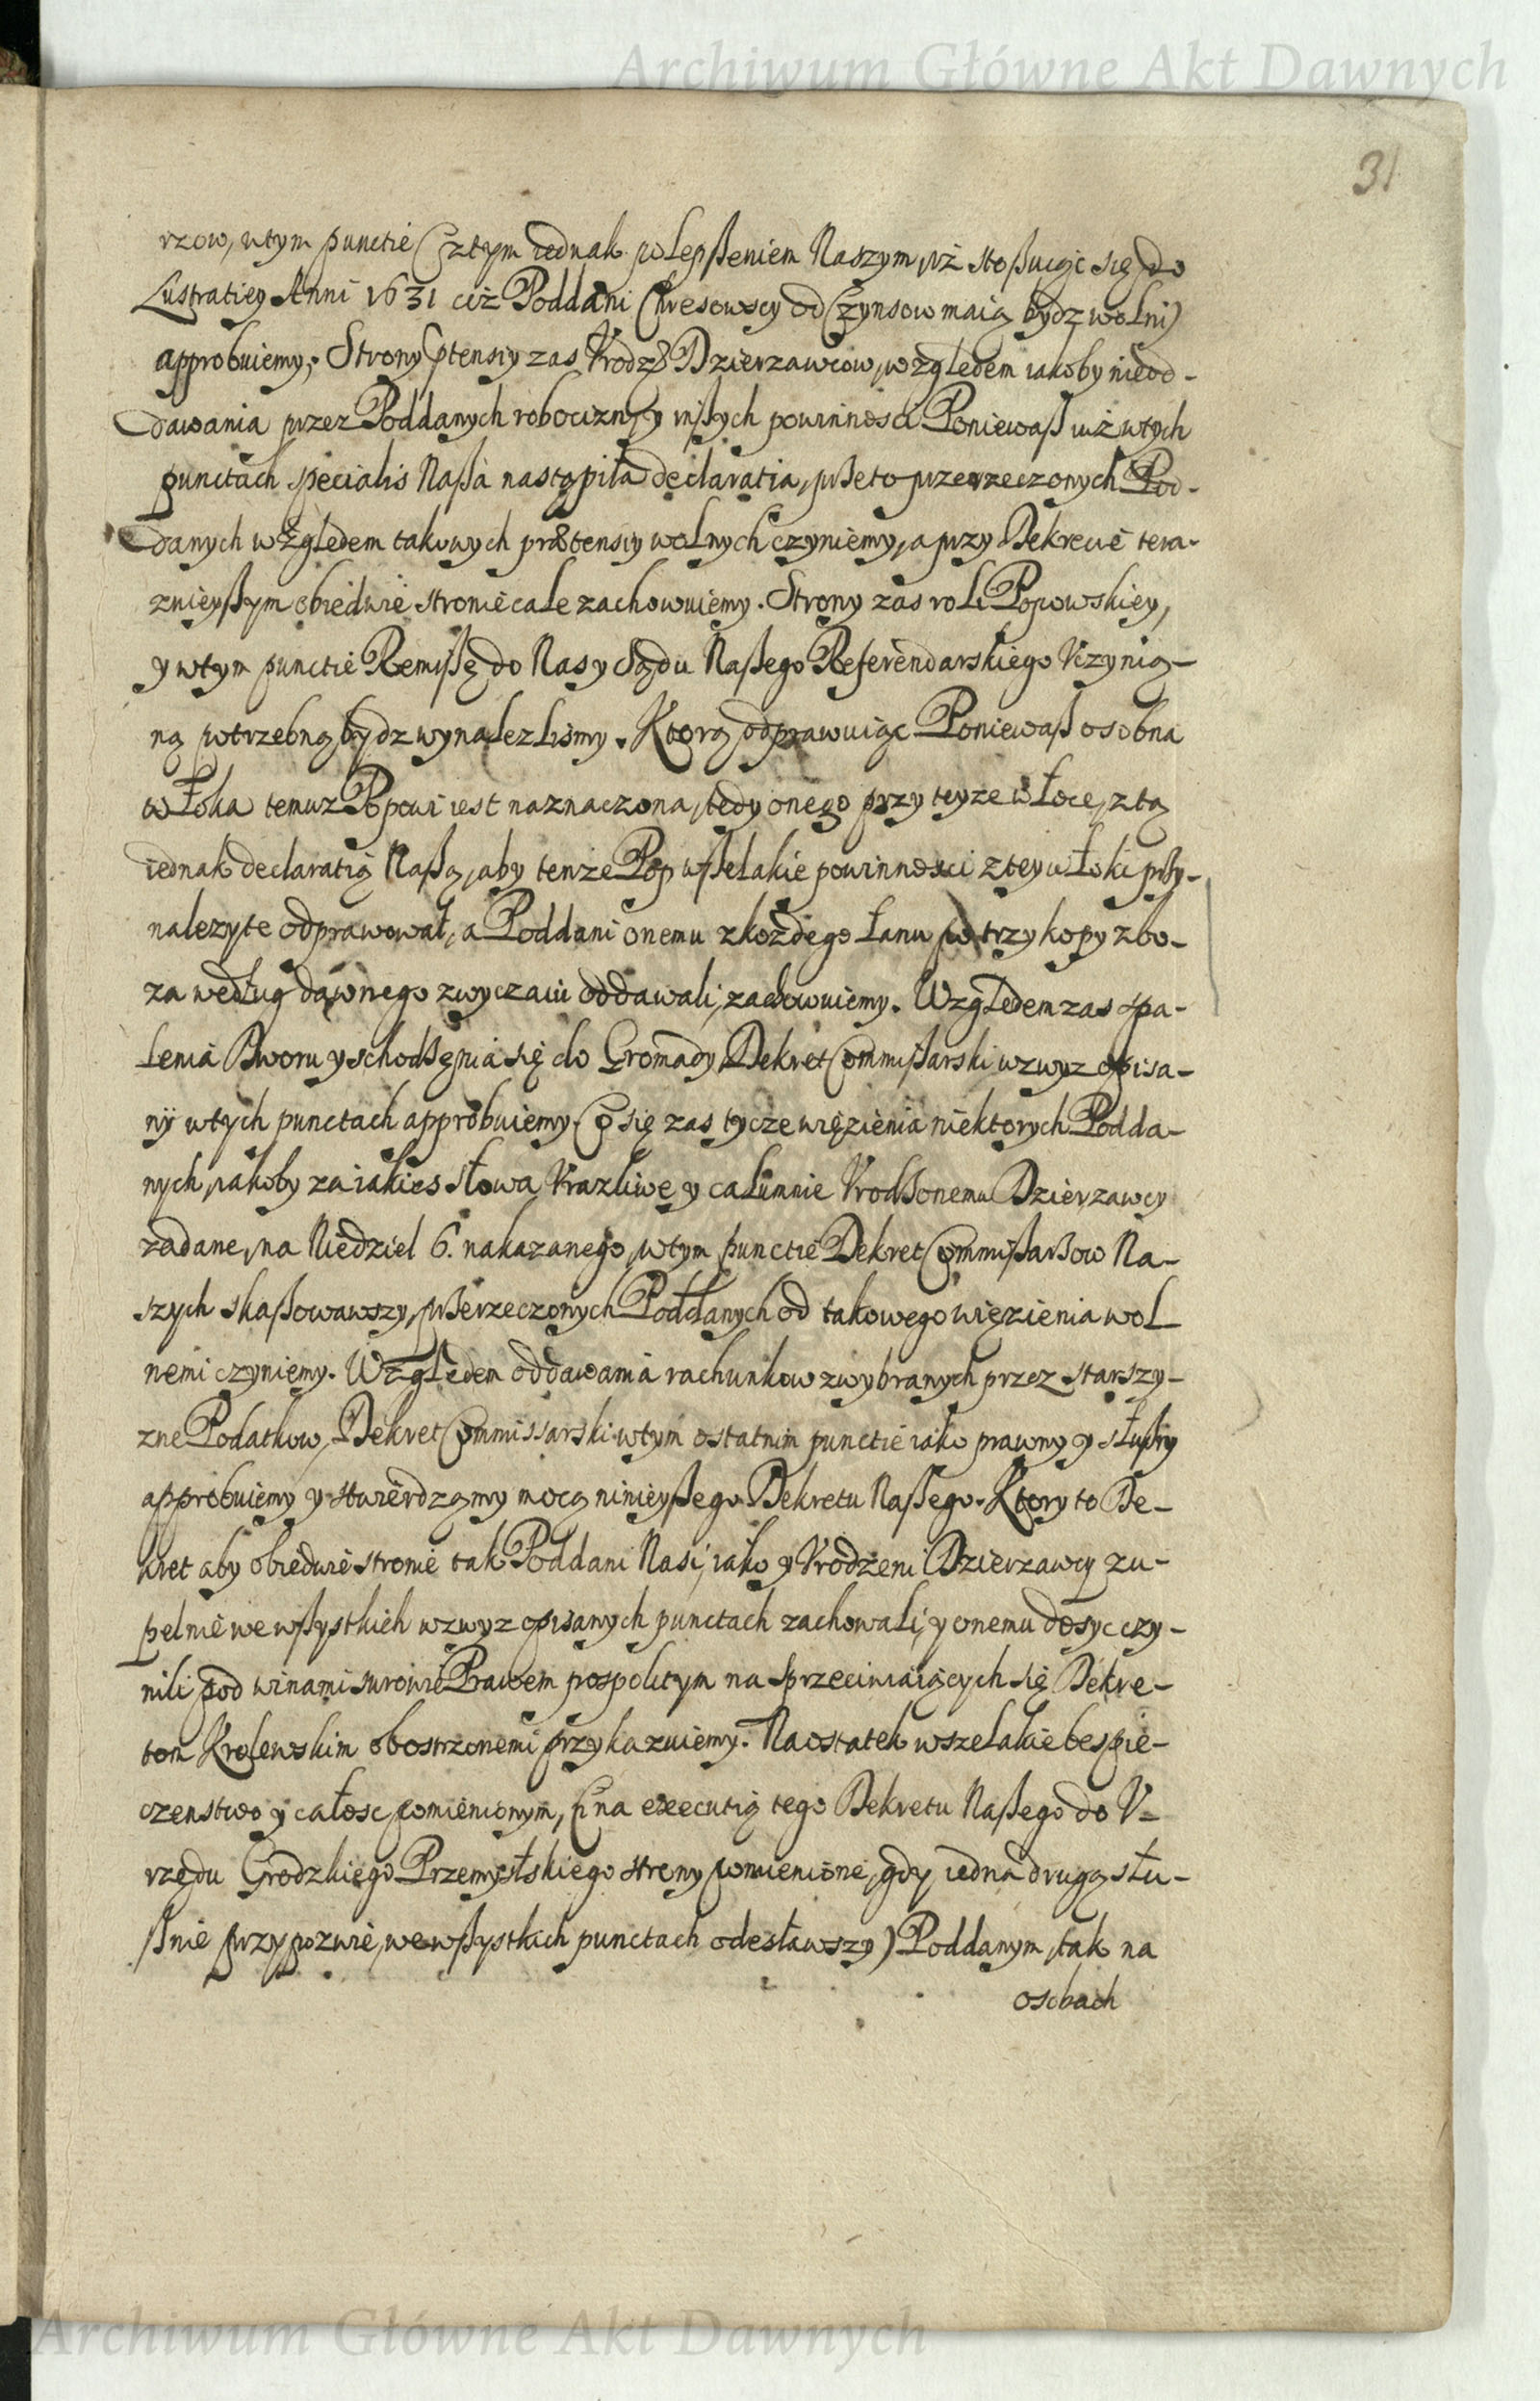 Archiwum Główne Akt Dawnych
31
rzow, wtym punctie (ztym iednak polepßeniem Naszym, iż stoßuiąc się do
Lustratiey Anni 1631 ciż Poddani Chresowscy od Czynsow maią bydz wolni)
approbuiemy. Strony ptensiy zas Vrodz Dzierzawcow, względem iakoby nieod-
dawania przez Poddanych robocizny y inßych powinnosci Poniewaß iuż wtych
punctach specialis Naßa nastąpiła declaratia, przeto przerzeczonych Pod-
danych względem takowych prætensiy wolnych czyniemy, a przy Dekrecie tera-
znieyßym obiedwie stronie cale zachowuiemy. Strony zas roli Popowskiey,
y wtym punctie Remißę do Nas y Sądu Naßego Referendarskiego Vczynio-
ną potrzebną bydz wynalezlismy. Ktorą odprawuiąc Poniewaß osobna
włoka temuz Popowi iest naznaczona, tedy onego przy teyze włoce, z tą
iednak declaratią Naßą, aby tenze Pop wßelakie powinnosci z tey włoki przy-
nalezyte odprawował, a Poddani onemu zkożdego łanu po trzy kopy zbo-
za według dawnego zwyczaiu oddawali, zachowuiemy. Względem zas spa-
lenia Dworu y schodzenia się do Gromady, Dekret Commißarski wzwyz opisa-
ny wtych punctach approbuiemy. Co się zas tycze więzienia niektorych Podda-
nych, iakoby za iakies słowa Vrazliwe y calumnie Vrodzonemu Dzierzawcy
zadane, na Niedziel 6. nakazanego, wtym punctie Dekret Commißarzow Na-
szych skaßowawszy, przerzeczonych Poddanych od takowego więzienia wol
nemi czyniemy. Względem oddawania rachunkow zwybranych przez starszy-
zne Podatkow, Dekret Commissarski wtym ostatnim punctie iako prawny y słußny
approbuiemy y stwierdzamy mocą ninieyßego Dekretu Naßego. Ktory to De-
kret aby obiedwie stronie tak Poddani Nasi, iako y Vrodzeni Dzierzawcy zu-
pelnie we wßystkich wzwyz opisanych punctach zachowali, y onemu dosyc czy-
nili pod winami surowie Prawem pospolitym na sprzeciwiaiących się Dekre-
tom Krolewskim obostrzonemi przykazuiemy. Naostatek wszelakie bespie-
czenstwo y całosc pomienionym, (na executią tego Dekretu Naßego do V-
rzędu Grodzkiego Przemyslskiego strony pomienione, gdy iedna drugą słu-
ßnie przypozwie, we wßystkich punctach odesławszy) Poddanym, tak na
osobach
Archiwum Główne Akt Dawnych